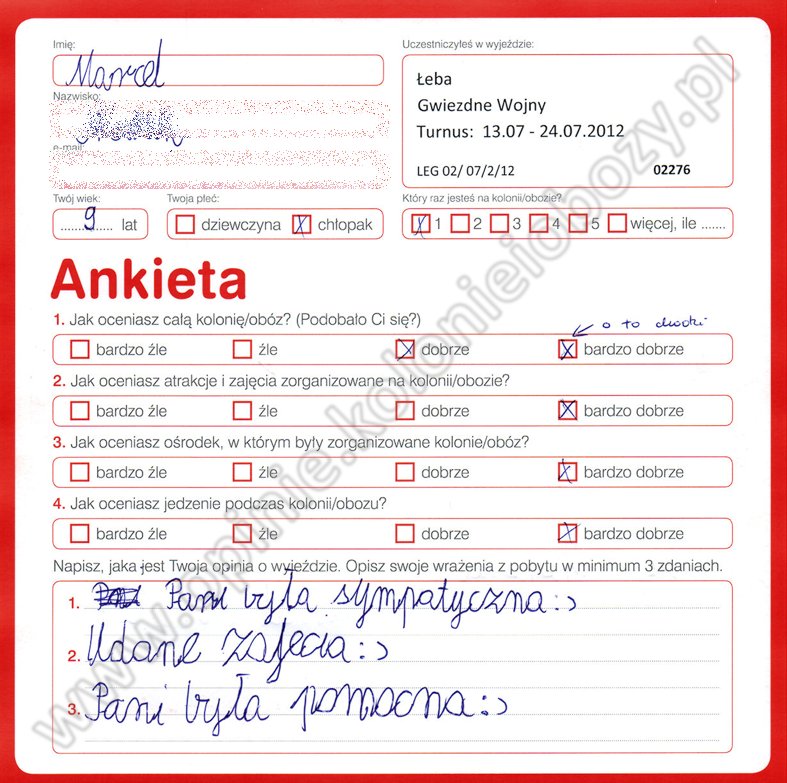 Imię:
Marcel
Uczestniczyłeś w wyjeździe:
Łeba
Gwiezdne Wojny
Turnus: 13.07 - 24.07.2012
LEG 02/ 07/2/12 02276
Nazwisko:
e-mail
Twój wiek:
9 lat
Twoja płeć:
dziewczyna X chłopak
Który raz jesteś na kolonii/obozie?
X 1 2 3 4 5 więcej, ile .......
Ankieta
1. Jak oceniasz całą kolonię/obóz? (Podobało Ci się?)
o to chodzi
bardzo źle źle X dobrze X bardzo dobrze
2. Jak oceniasz atrakcje i zajęcia zorganizowane na kolonii/obozie?
bardzo źle źle dobrze X bardzo dobrze
3. Jak oceniasz ośrodek, w którym były zorganizowane kolonie/obóz?
bardzo źle źle dobrze X bardzo dobrze
4. Jak oceniasz jedzenie podczas kolonii/obozu?
bardzo źle źle dobrze X bardzo dobrze
Napisz, jaka jest Twoja opinia o wyjeździe. Opisz swoje wrażenia z pobytu w minimum 3 zdaniach.
1. Pani była sympatyczna :)
2. Udane zajęcia :)
3. Pani była pomocna :)
www.opinie.kolonieiobozy.pl